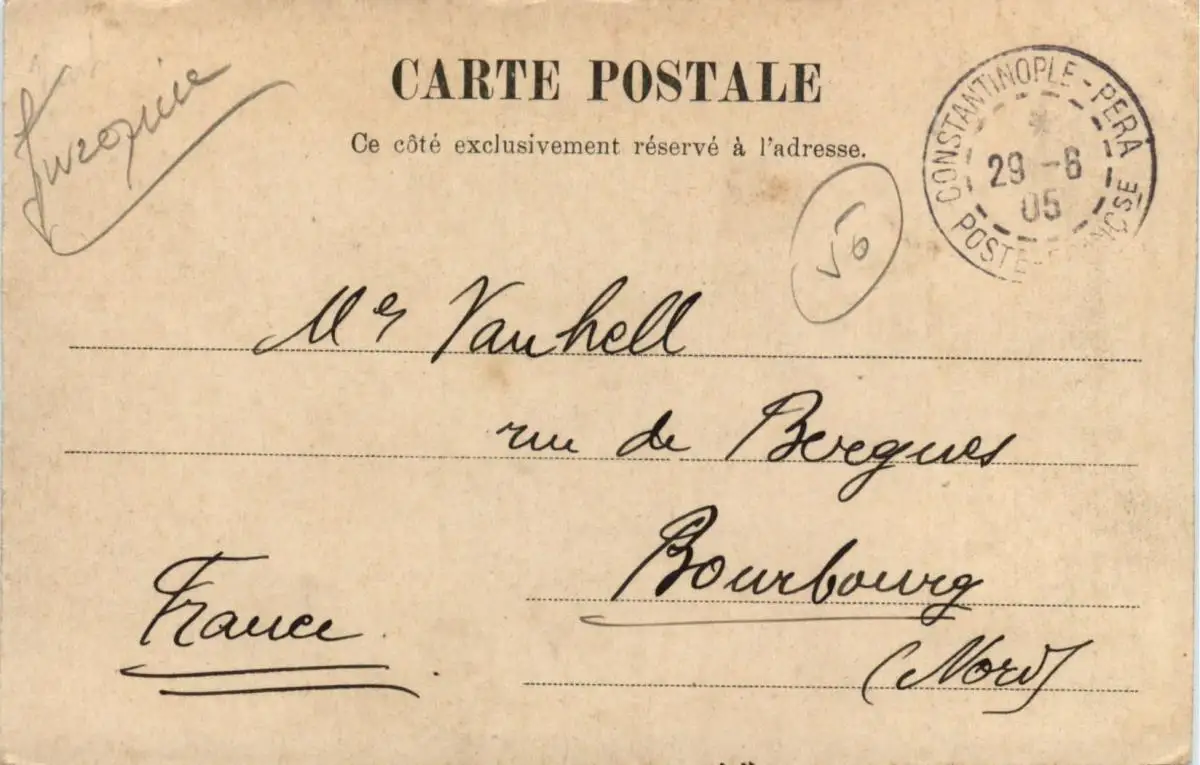 CARTE POSTALE
Ce côté exclusivement réservé à l'adresse.
CONSTANTINOPLE - PERA
29 -6
05
POSTE
Mr Vanhell
rue de Bergues
Bourbourg
(Nord)
France